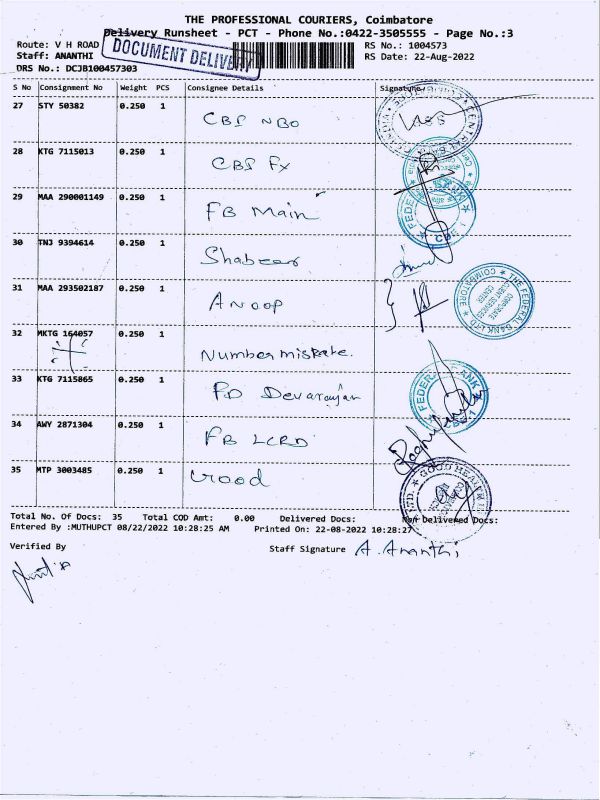 THE PROFESSIONAL COURIERS, Coimbatore
Delivery Runsheet - PCT - Phone No.:0422-3505555 - Page No.:3
Route: V H ROAD
RS No.: 1004573
Staff: ANANTHI
RS Date: 22-Aug-2022
DRS No.: DCJB100457303
DOCUMENT DELIVERY
S No Consignment No Weight PCS Consignee Details Signature
27 STY 50382 0.250 1 CBS NBO
28 KTG 7115013 0.250 1 CBS FX
29 MAA 290001149 0.250 1 FB Main
30 TNJ 9394614 0.250 1 Shabeer
31 MAA 293502187 0.250 1 Anoop
THE FEDERAL BANK LTD. COIMBATORE
CORPORATE CLIENT SERVICES CENTER
32 MKTG 164057 0.250 1 Number mistake.
33 KTG 7115865 0.250 1 PD Devarajan
FEDERAL BANK
34 AWY 2871304 0.250 1 FB LCRD
35 MTP 3003485 0.250 1 Good
GOOD HEALTH
Total No. Of Docs: 35 Total COD Amt: 0.00 Delivered Docs: Non Delivered Docs:
Entered By :MUTHUPCT 08/22/2022 10:28:25 AM Printed On: 22-08-2022 10:28:27
Verified By Staff Signature A. Ananthi